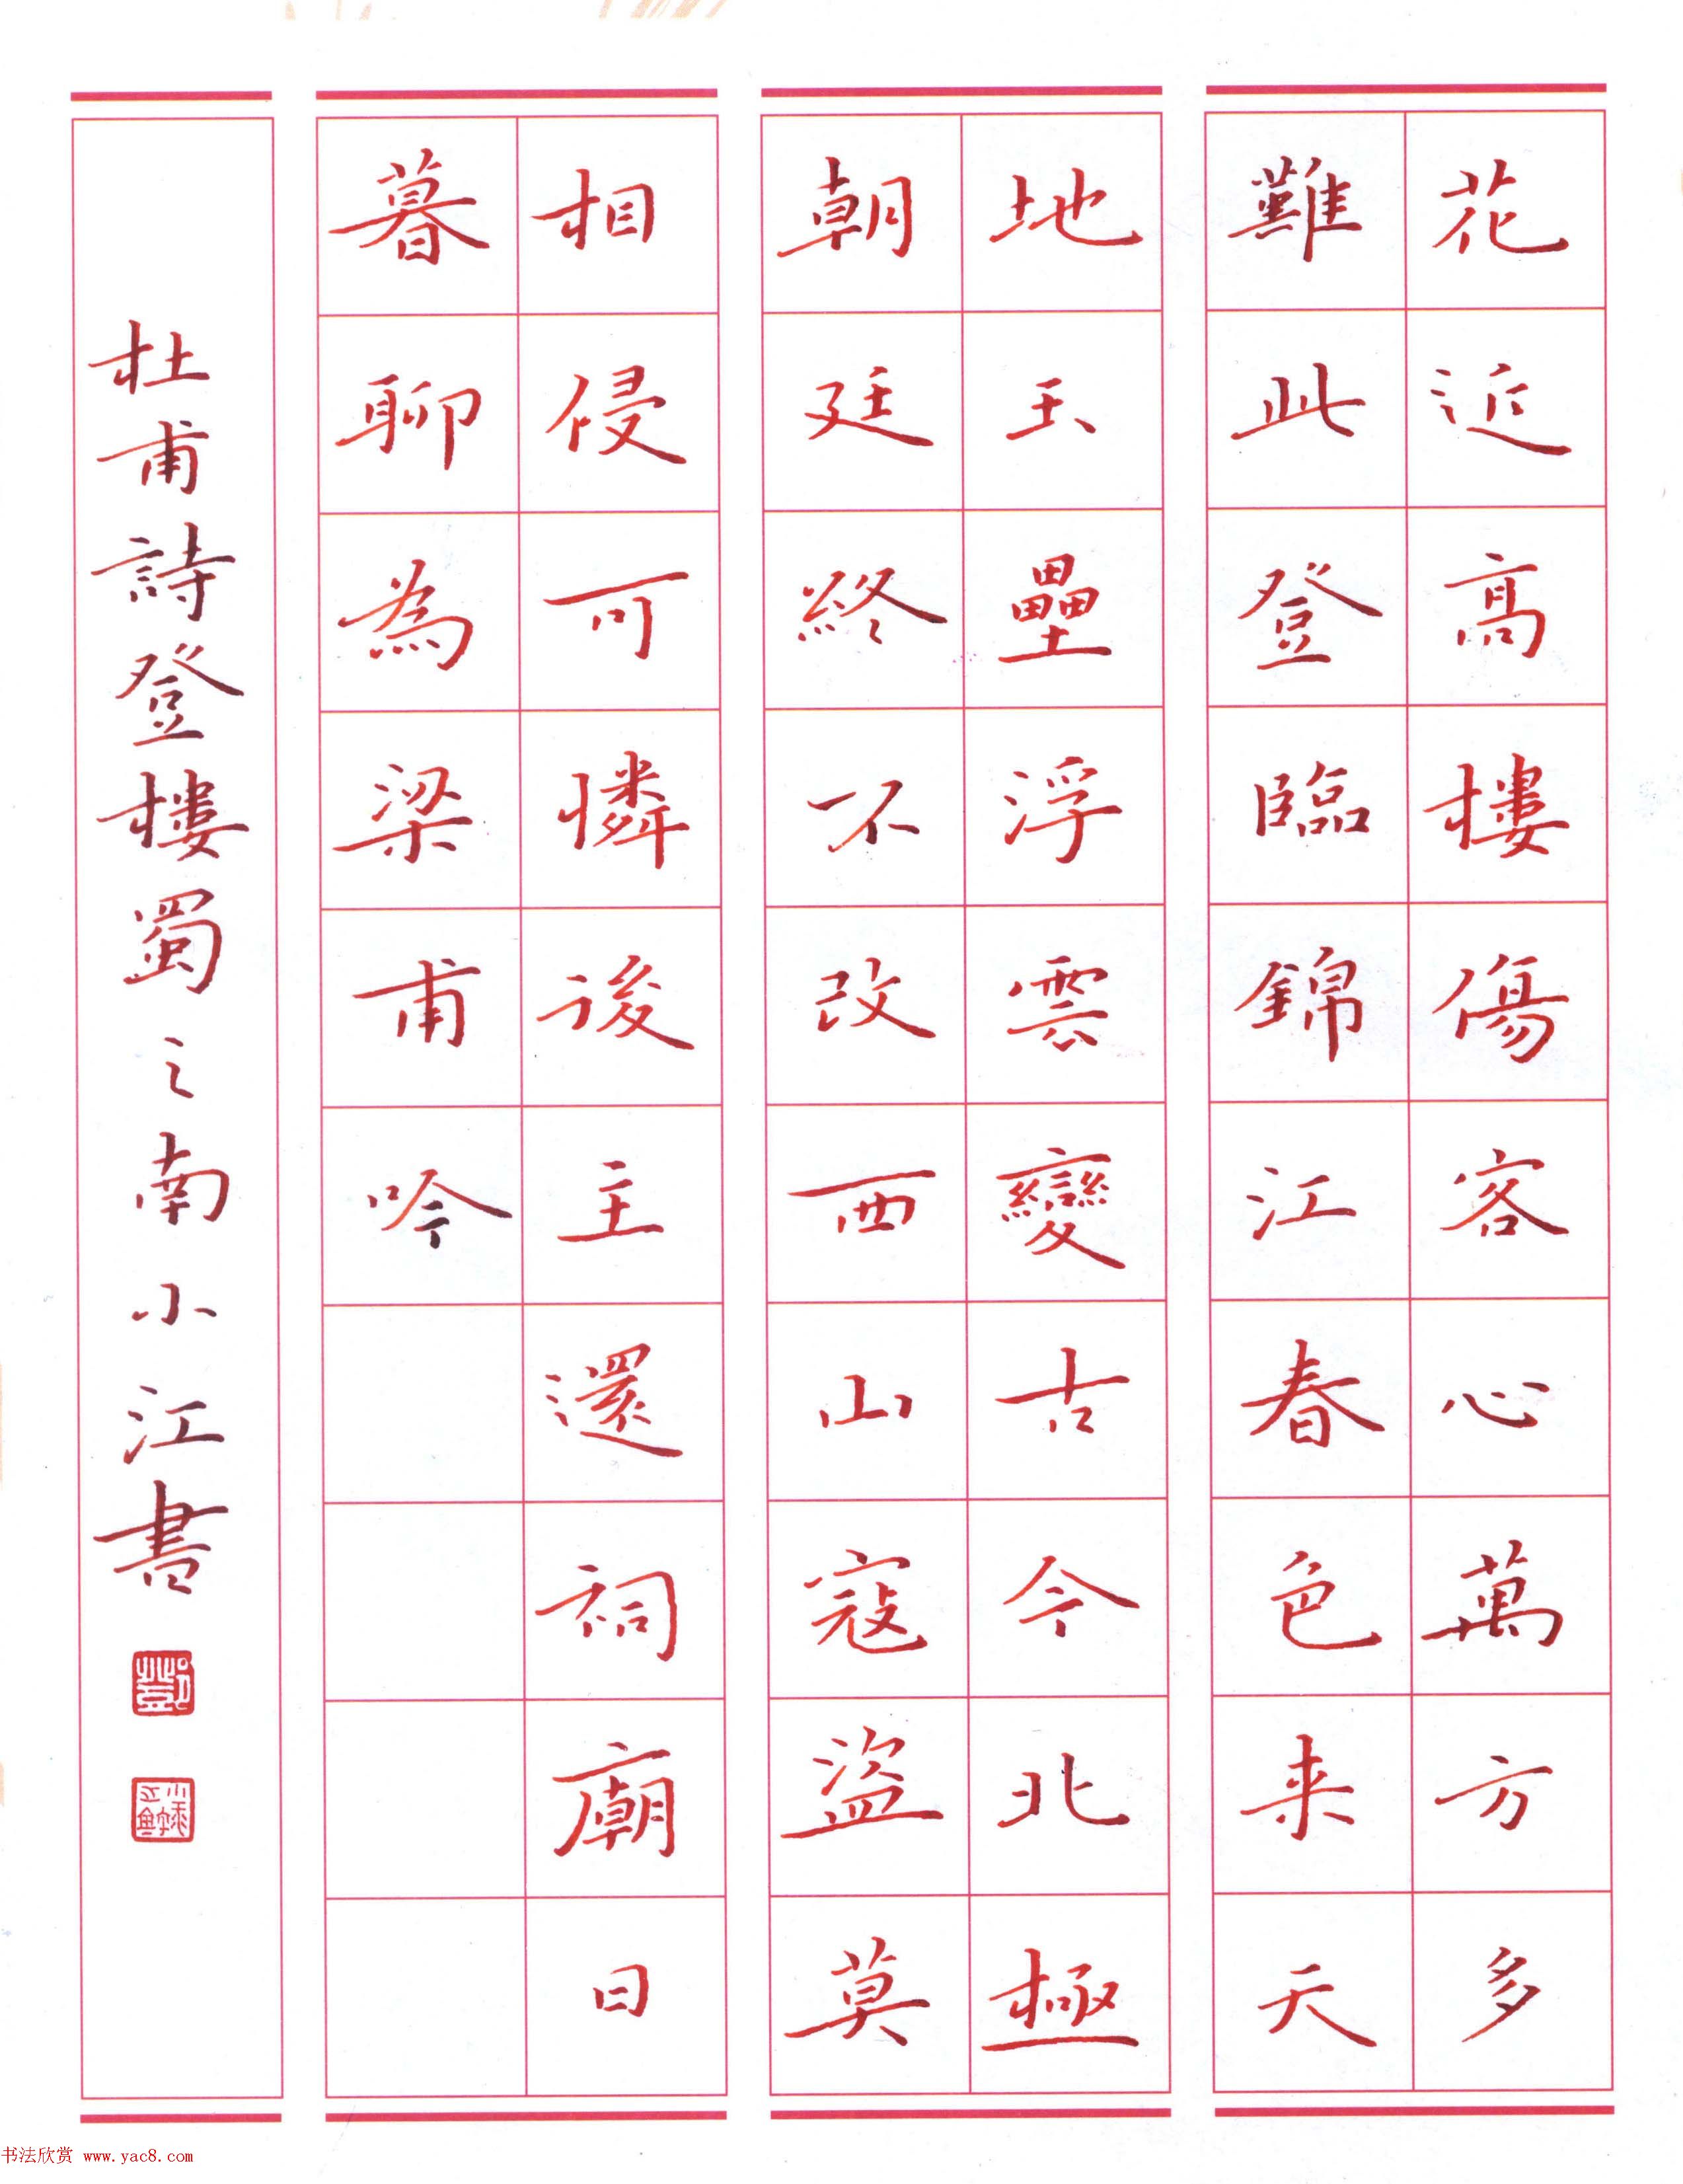 花近高樓傷客心萬方多
難此登臨錦江春色来天
地玉壘浮雲變古今北極
朝廷終不改西山寇盜莫
相侵可憐後主還祠廟日
暮聊為梁甫吟
杜甫詩登樓蜀之南小江書
书法欣赏 www.yac8.com